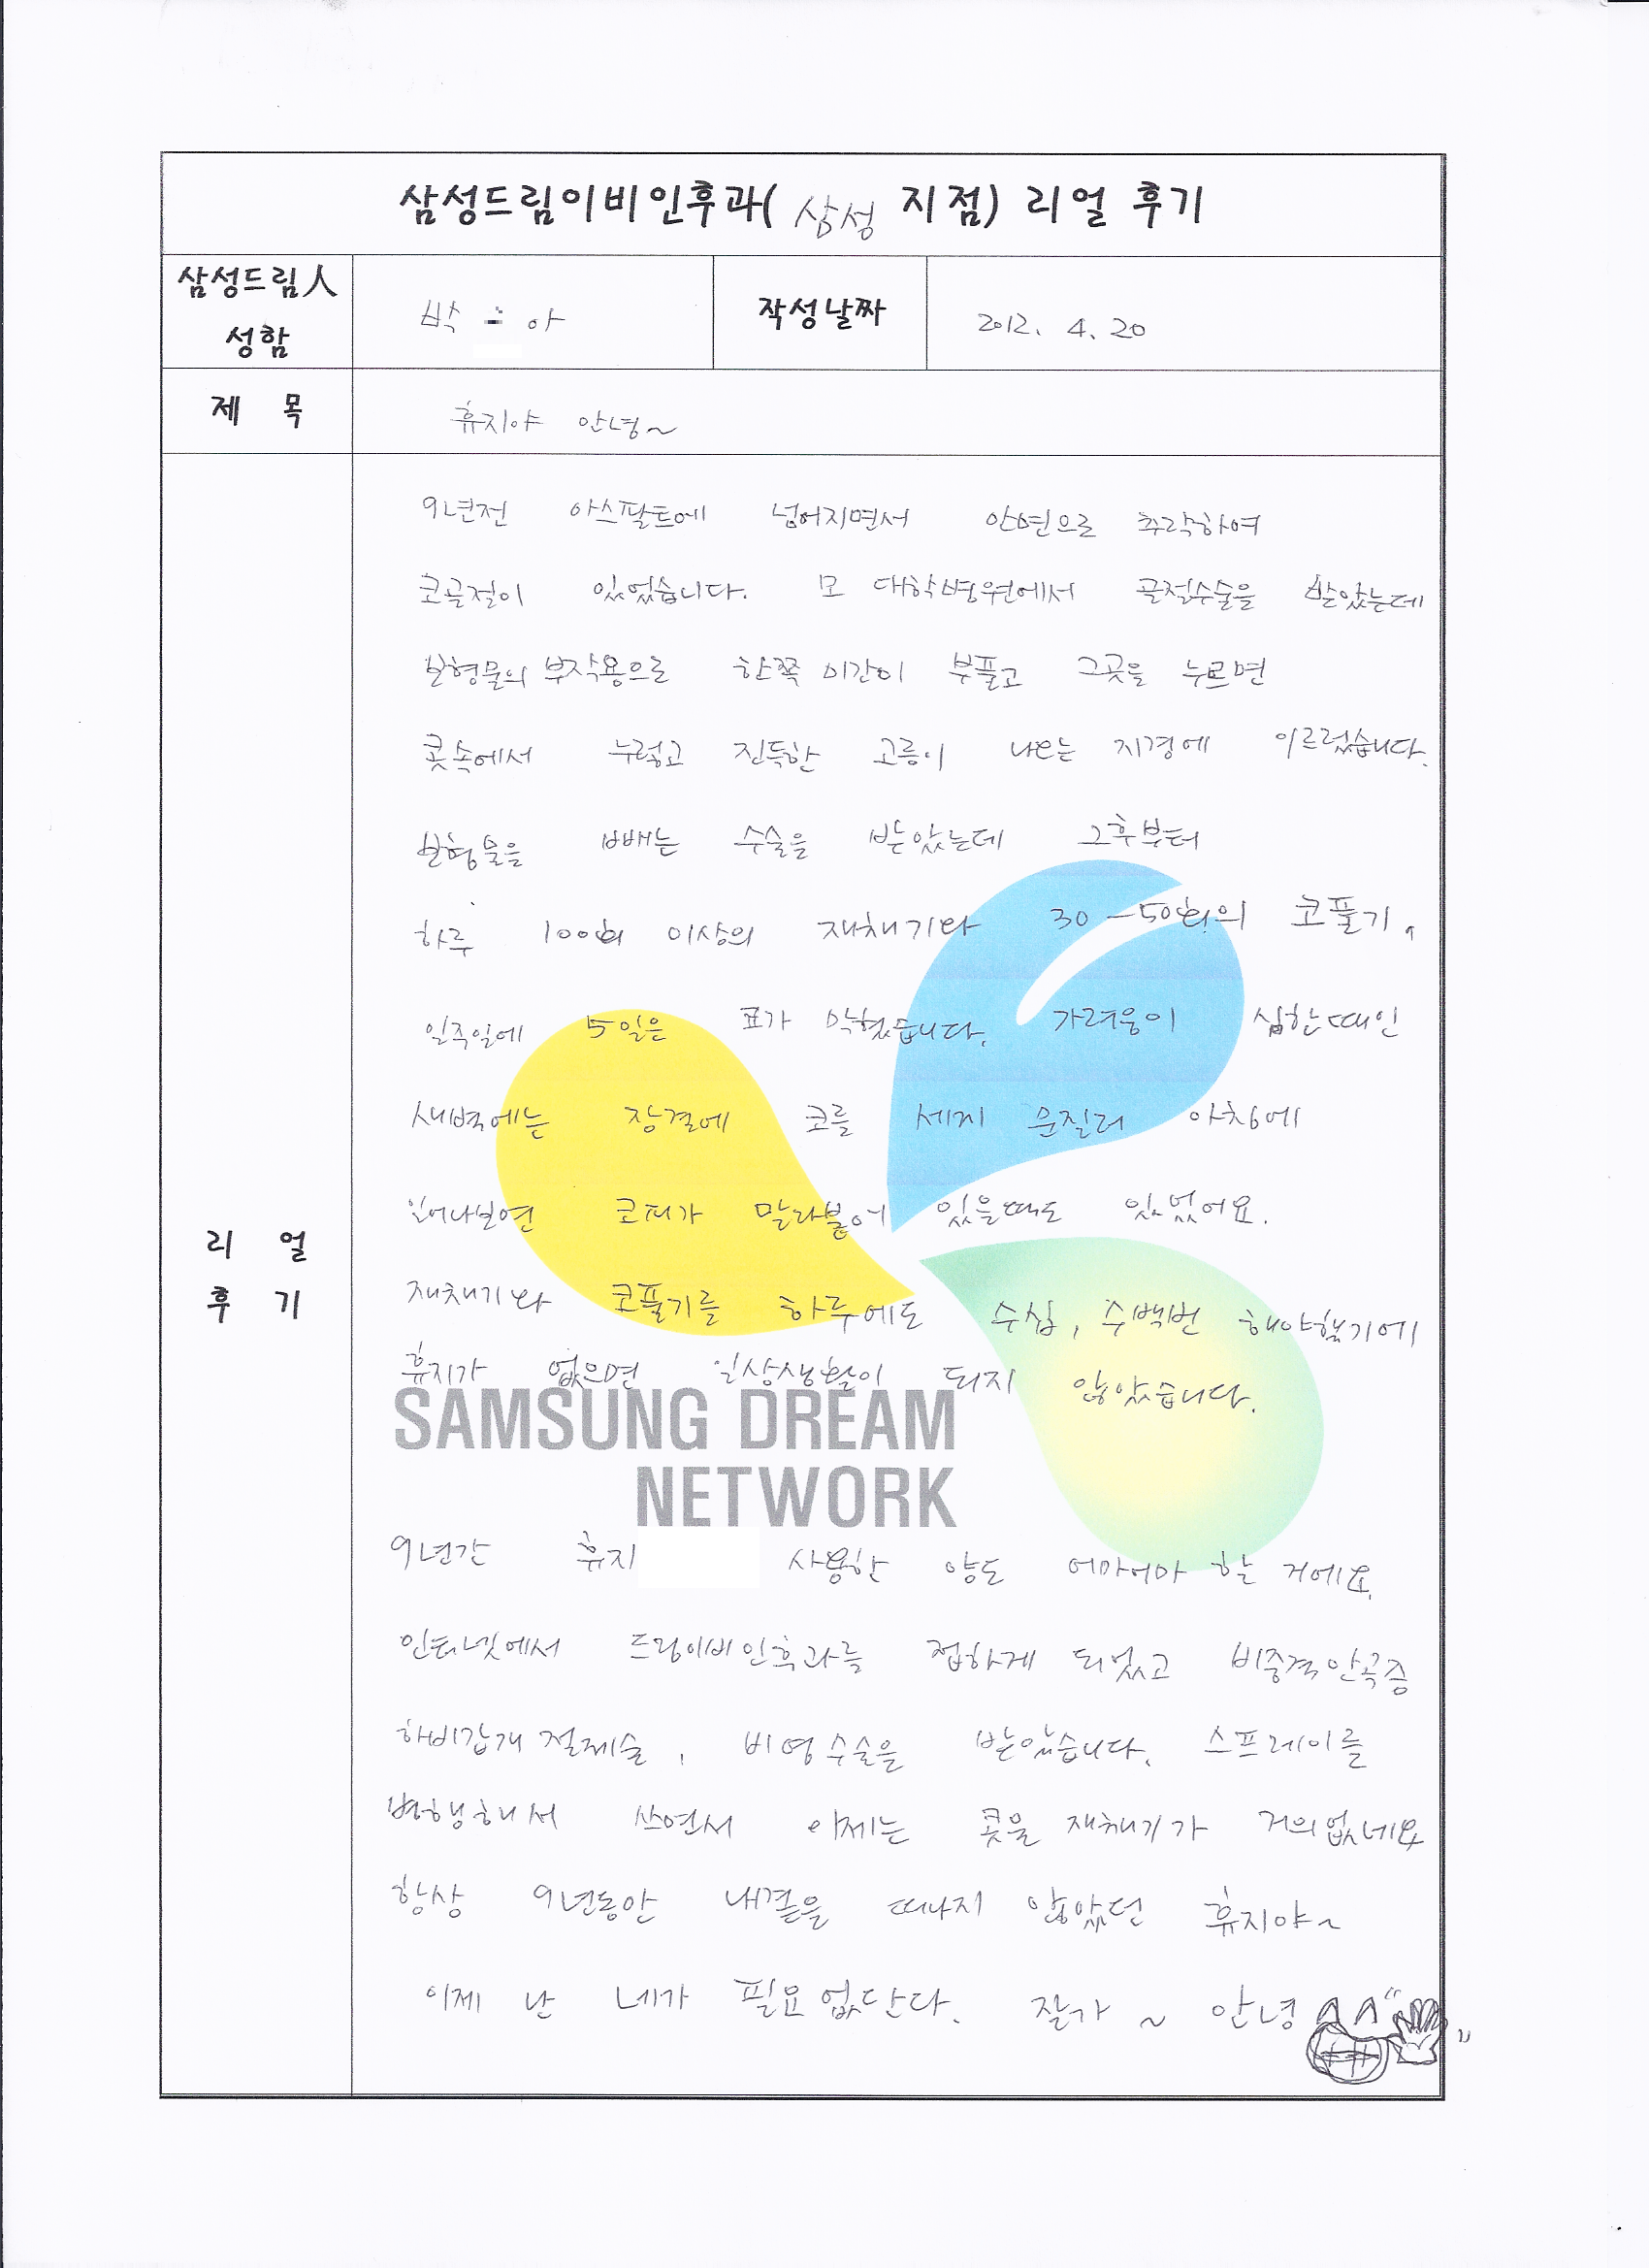 삼성드림이비인후과( 삼성 지점) 리얼 후기
삼성드림人 성함
박 아
작성날짜
2012. 4. 20
제 목
휴지야 안녕~
리 얼 후 기
9년전 아스팔트에 넘어지면서 안면으로 추락하여
코골절이 있었습니다. 모 대학병원에서 골절수술을 받았는데
보형물의 부작용으로 한쪽 미간이 부풀고 그곳을 누르면
콧속에서 누렇고 진득한 고름이 나오는 지경에 이르렀습니다.
보형물을 빼는 수술을 받았는데 그후부터
하루 100회 이상의 재채기와 30-50회의 코풀기,
일주일에 5일은 코가 막혔습니다. 가려움이 심한때인
새벽에는 잠결에 코를 세게 문질러 아침에
일어나보면 코피가 말라붙어 있을때도 있었어요.
재채기와 코풀기를 하루에도 수십, 수백번 해야했기에
휴지가 없으면 일상생활이 되지 않았습니다.
SAMSUNG DREAM
NETWORK
9년간 휴지 사용한 양도 어마어마 할 거에요.
인터넷에서 드림이비인후과를 접하게 되었고 비중격만곡증
하비갑개 절제술, 비염수술을 받았습니다. 스프레이를
병행해서 쓰면서 이제는 콧물 재채기가 거의없네요
항상 9년동안 내곁을 떠나지 않았던 휴지야~
이제 난 네가 필요없단다. 잘가 ~ 안녕